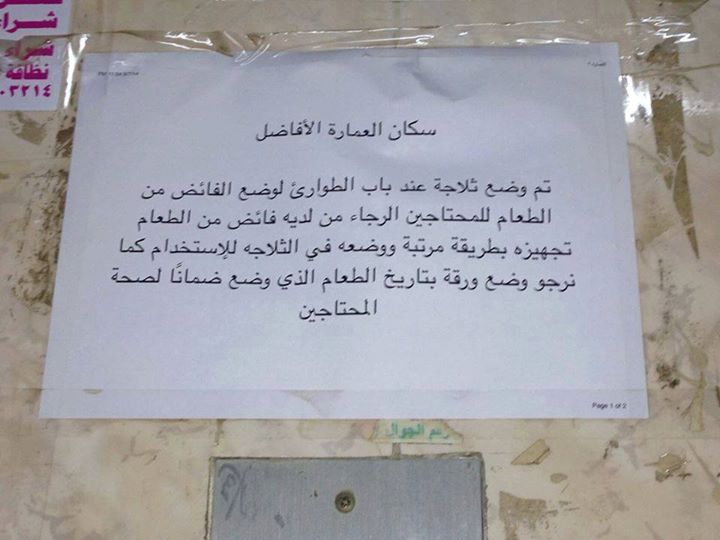 شراء
شراء
نظافة
٠٣٢١٤
سكان العمارة الأفاضل
تم وضع ثلاجة عند باب الطوارئ لوضع الفائض من
الطعام للمحتاجين الرجاء من لديه فائض من الطعام
تجهيزه بطريقة مرتبة ووضعه في الثلاجه للإستخدام كما
نرجو وضع ورقة بتاريخ الطعام الذي وضع ضمانًا لصحة
المحتاجين
Page 1 of 2
رقم الجوال